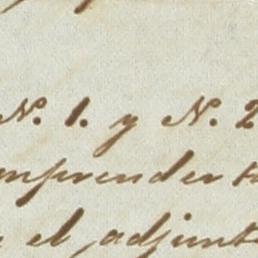 N.º 1. y N. 2
mprender t
el adjunt